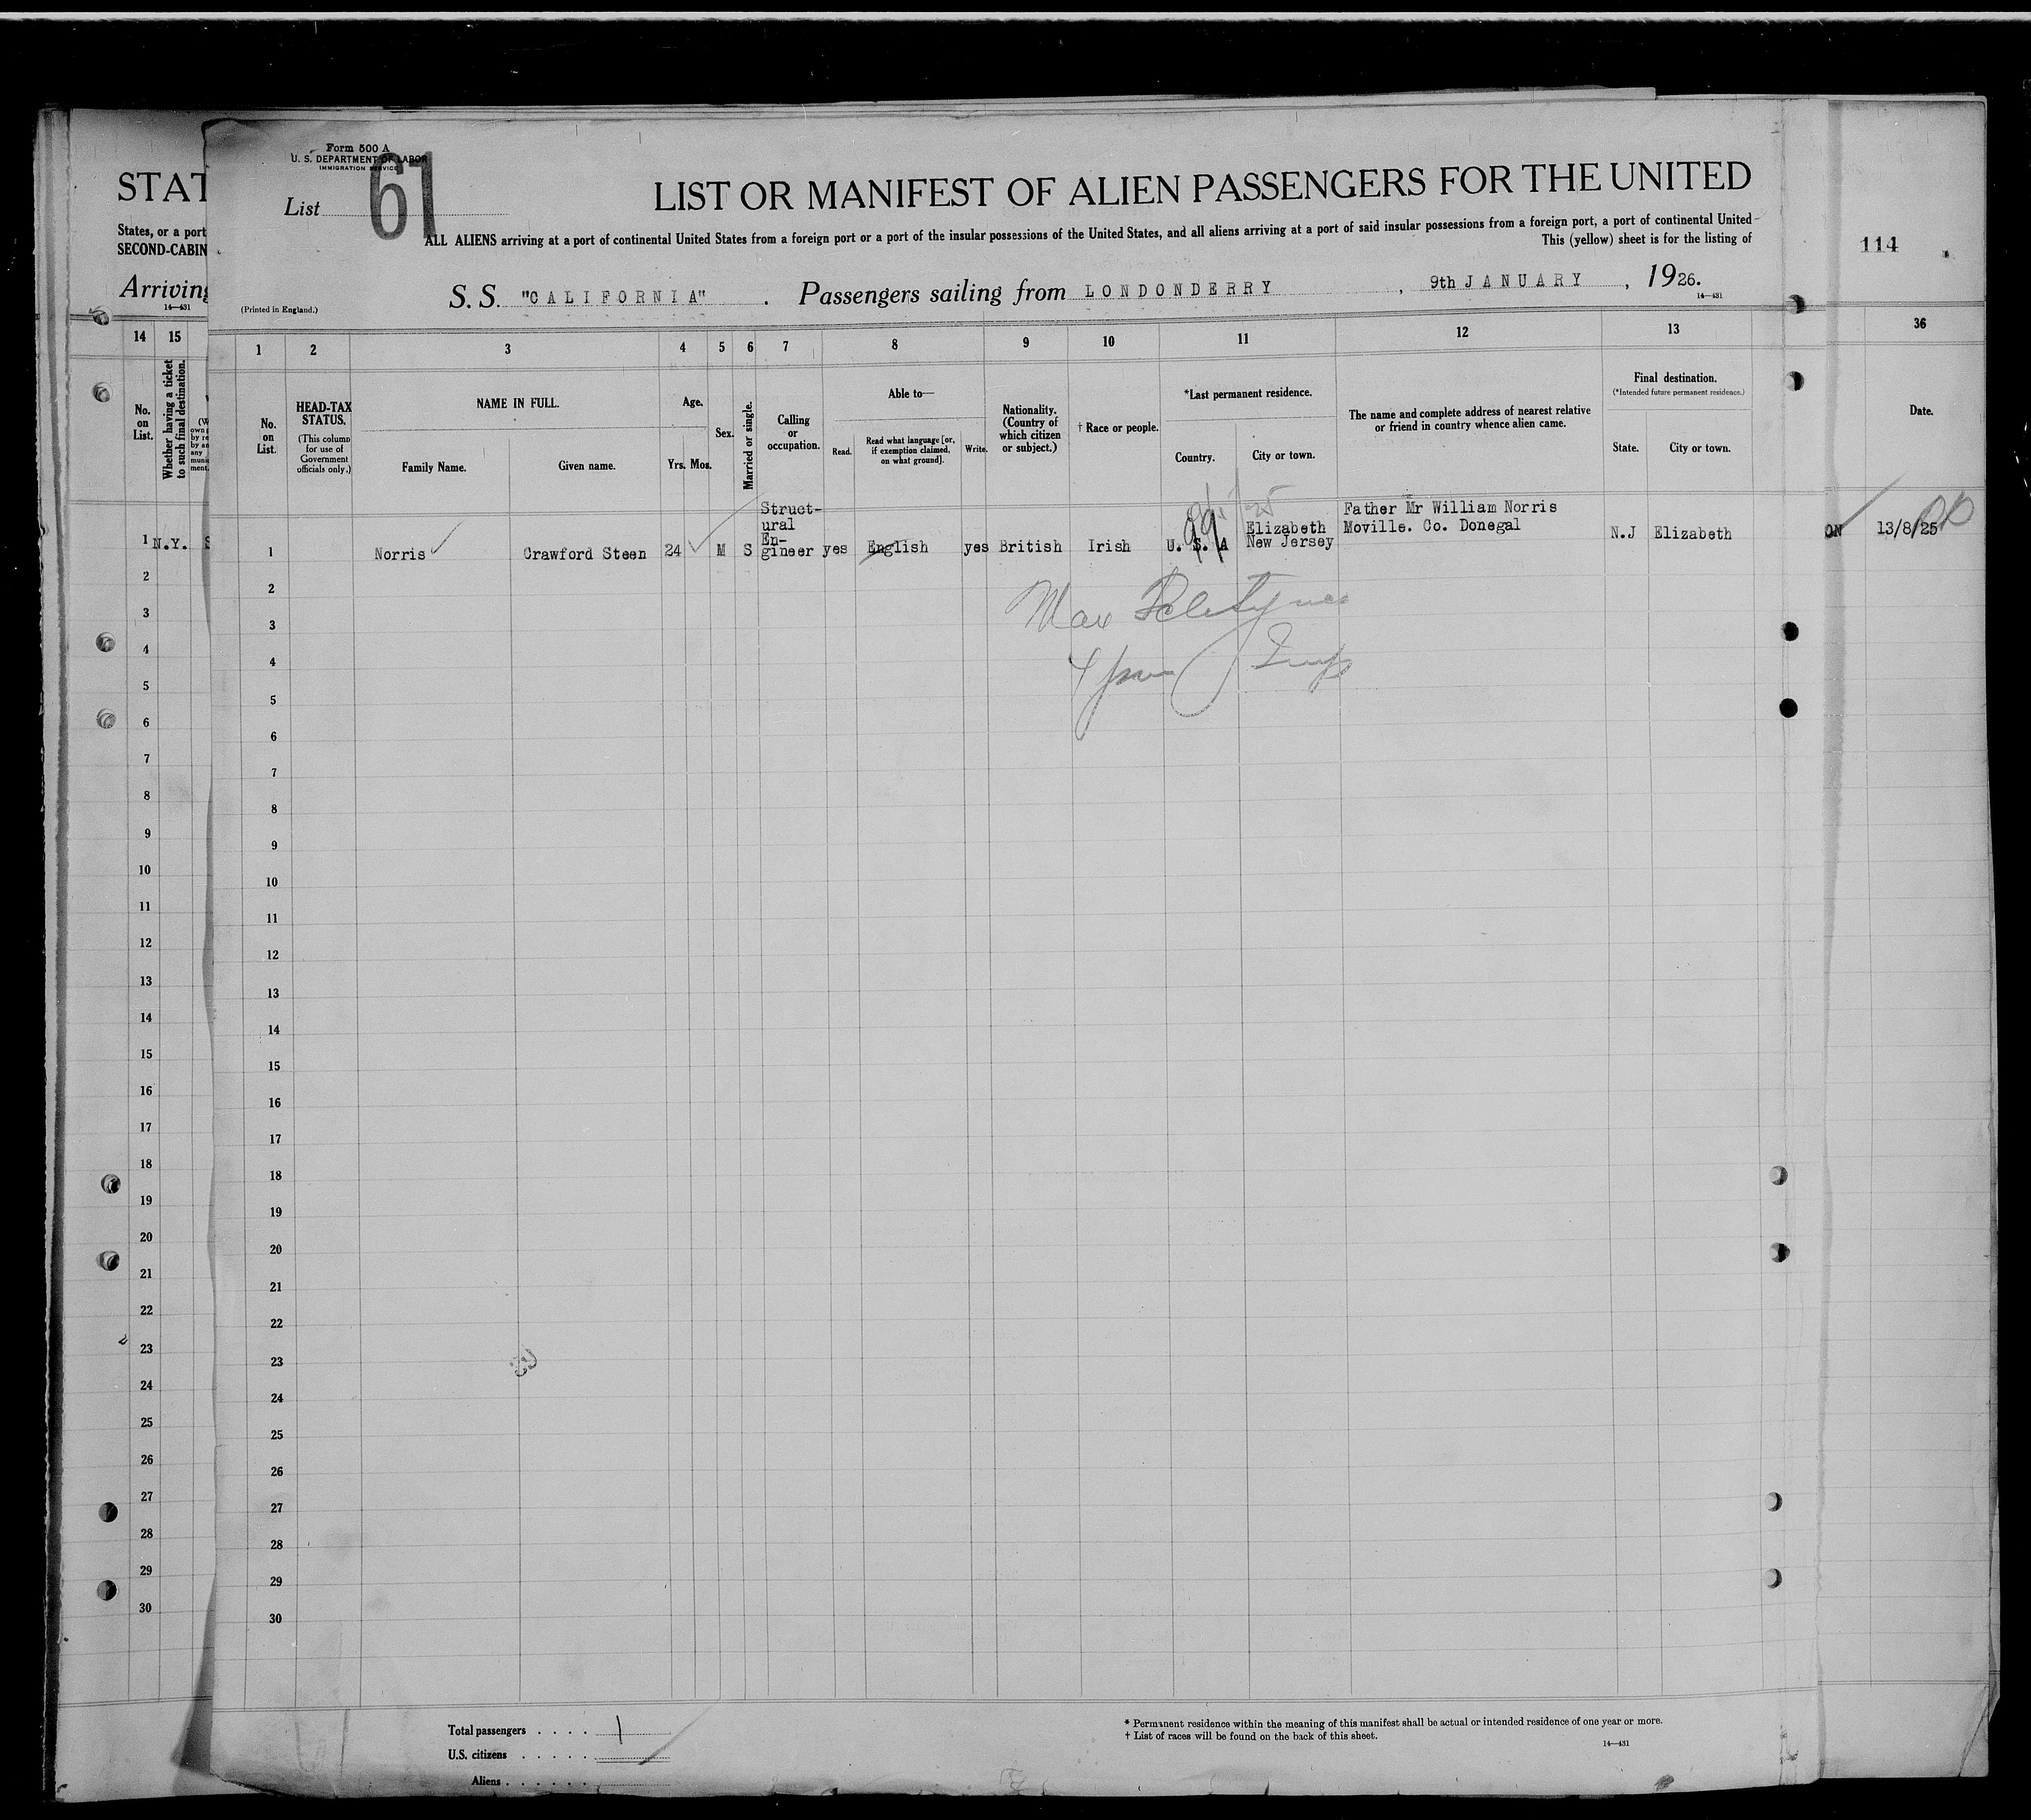 Form 500 A
U. S. DEPARTMENT OF LABOR
IMMIGRATION SERVICE
List 61
LIST OR MANIFEST OF ALIEN PASSENGERS FOR THE UNITED
ALL ALIENS arriving at a port of continental United States from a foreign port or a port of the insular possessions of the United States, and all aliens arriving at a port of said insular possessions from a foreign port, a port of continental United
This (yellow) sheet is for the listing of
S. S. "CALIFORNIA" . Passengers sailing from LONDONDERRY , 9th JANUARY , 1926.
(Printed in England.)
14—431
STAT
States, or a port
SECOND-CABIN
Arriving
14—431
114
14 15
1 2 3 4 5 6 7 8 9 10 11 12 13
36
No. on List.
Whether having a ticket to such final destination.
No. on List.
HEAD-TAX STATUS.
(This column for use of Government officials only.)
NAME IN FULL.
Family Name. Given name.
Age.
Yrs. Mos.
Sex.
Married or single.
Calling or occupation.
Able to—
Read.
Read what language [or, if exemption claimed, on what ground].
Write.
Nationality. (Country of which citizen or subject.)
† Race or people.
*Last permanent residence.
Country. City or town.
The name and complete address of nearest relative or friend in country whence alien came.
Final destination.
(*Intended future permanent residence.)
State. City or town.
Date.
1 N.Y. S
1 Norris Crawford Steen 24 M S Struct-ural En-gineer yes English yes British Irish U. S. A Elizabeth New Jersey Father Mr William Norris Moville. Co. Donegal N.J Elizabeth
ON 13/8/25
99
2 2
3 3
4 4
5 5
6 6
7 7
8 8
9 9
10 10
11 11
12 12
13 13
14 14
15 15
16 16
17 17
18 18
19 19
20 20
21 21
22 22
23 23
24 24
25 25
26 26
27 27
28 28
29 29
30 30
Total passengers . . . . 1
U.S. citizens . . . . .
Aliens . . . . . .
* Permanent residence within the meaning of this manifest shall be actual or intended residence of one year or more.
† List of races will be found on the back of this sheet.
14—431